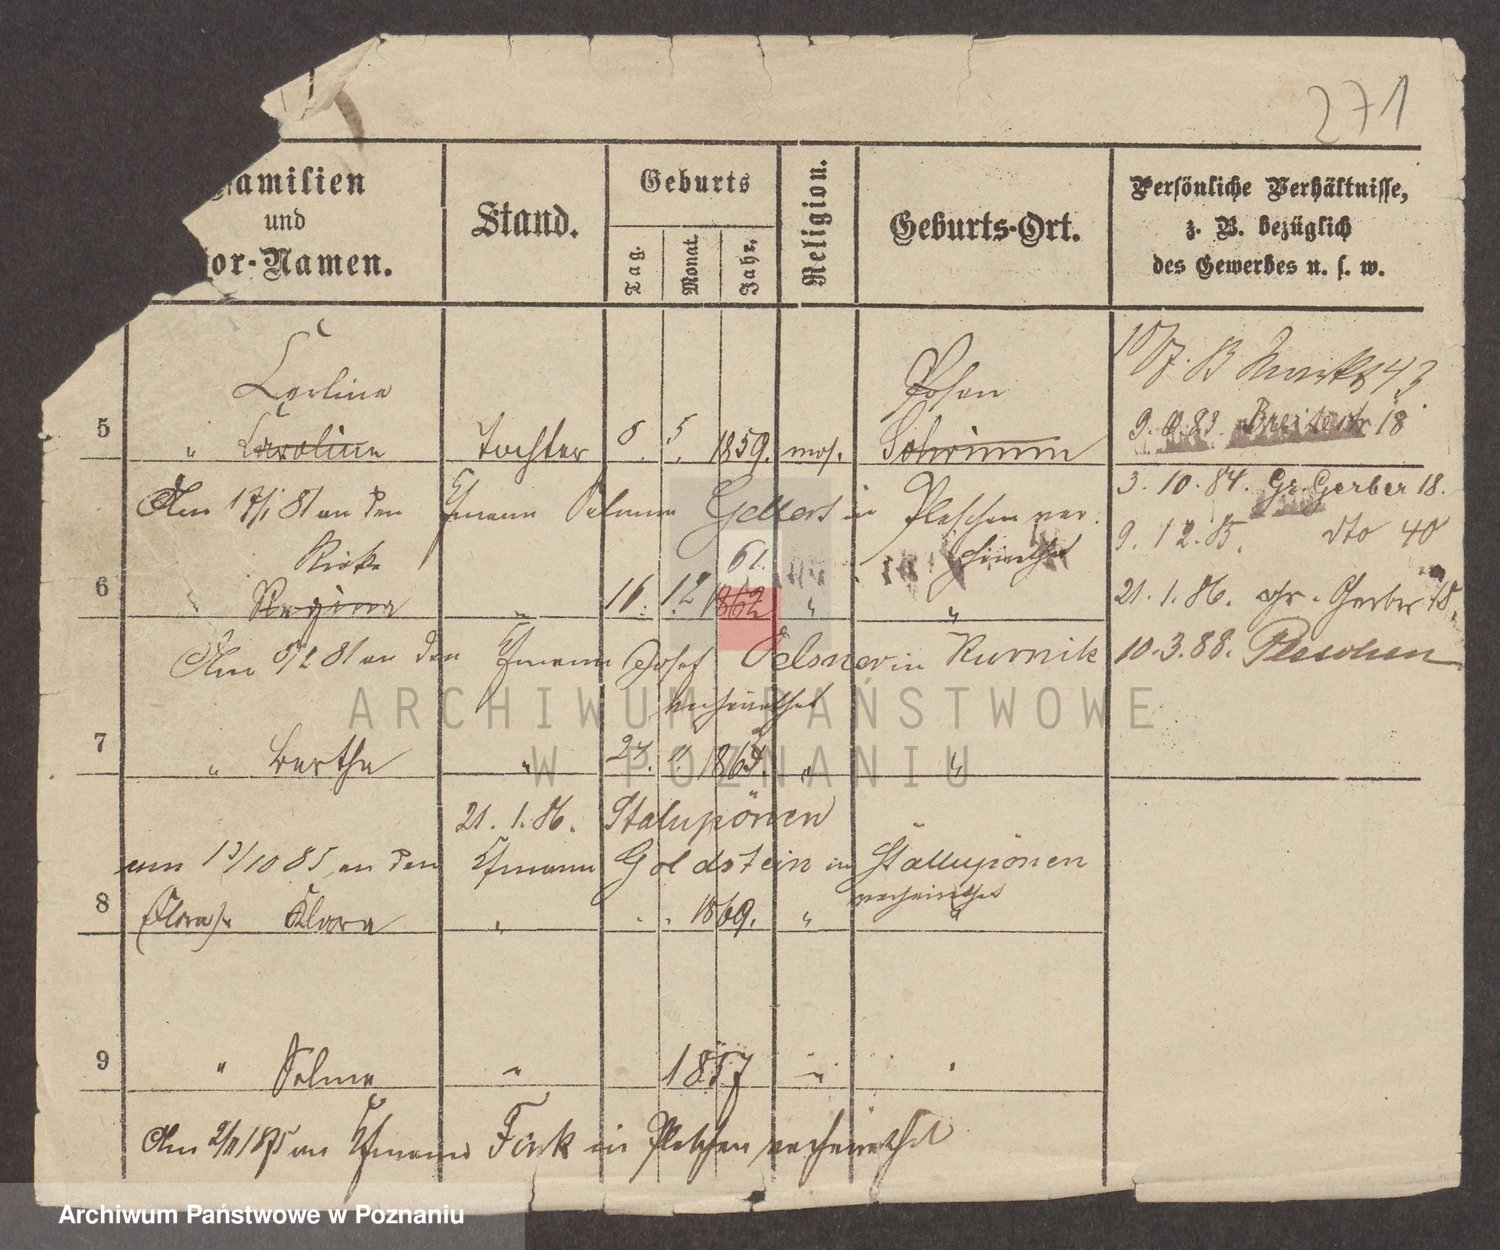 271
Familien
und
Vor-Namen.
Stand.
Geburts
Tag.
Monat.
Jahr.
Religion.
Geburts-Ort.
Persönliche Verhältnisse,
z. B. bezüglich
des Gewerbes u. s. w.
Carline
Posen
5 " Caroline Tochter 8. 5. 1859. mos. Schrimm
Am 17/1 81 an den Ehmann Gellert in Pleschen ver.
heirathet
Rieke 61.
6 Regina " 16. 12 1862 " "
Am 8/2 81 an den Ehmann Josef Oelsner in Kurnik
verheirathet
7 " Bertha " 1865. " "
21. 1. 86. Stalupönen
am 13/10 85, an den Ehmann Goldstein in Stallupönen
verheirathet
8 (Flora) Klara " 1869. " "
9 " Selma " 1857 "
Am 2/11 1875 an Ehmann Fink in Pleschen verheirathet
10/7. B Markt 43
9. 9. 83. Breitestr 18
3. 10. 84. Gr. Gerber 18.
9. 12. 85. dto 40
21. 1. 86. Gr. Gerber 18.
10. 3. 88. Pleschen
ARCHIWUM PAŃSTWOWE
W POZNANIU
Archiwum Państwowe w Poznaniu